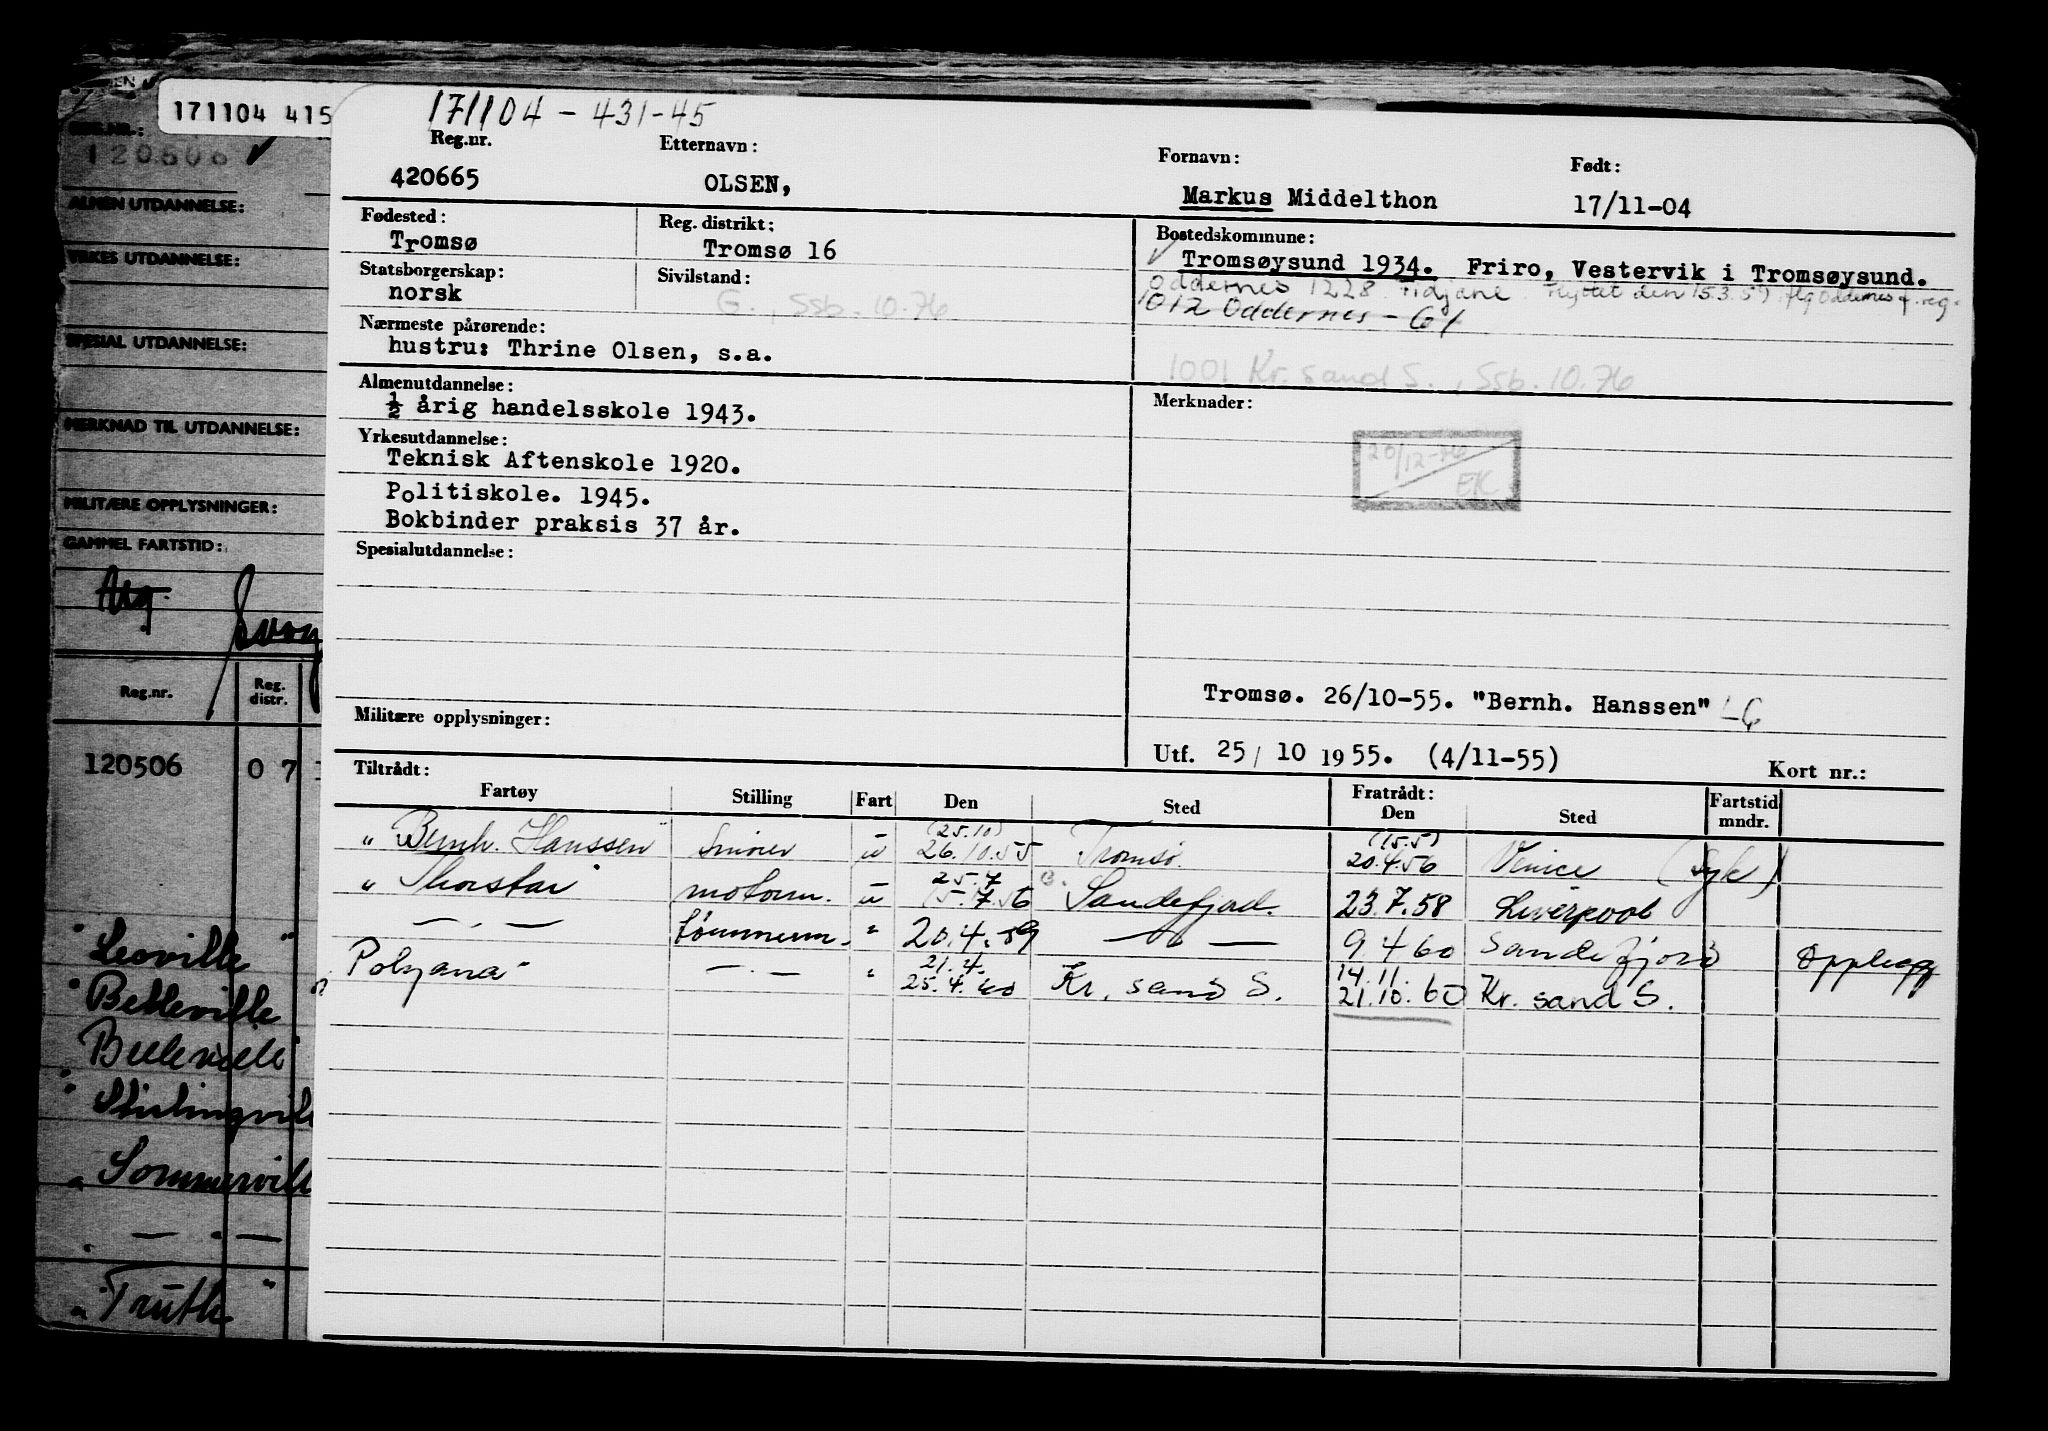 171104 415
REG.NR.:
120506 ✓
ALMEN UTDANNELSE:
YRKES UTDANNELSE:
SPESIAL UTDANNELSE:
MERKNAD TIL UTDANNELSE:
MILITÆRE OPPLYSNINGER:
GAMMEL FARTSTID:
Reg.nr. Reg. distr.
120506 07
"Leoville"
"Belleville
Belleville"
"Stirlingvill
"Sommervill
" — " —
"Truth"
171104 - 431-45
Reg.nr. Etternavn: Fornavn: Født:
420665 OLSEN, Markus Middelthon 17/11-04
Fødested: Reg. distrikt: Bostedskommune:
Tromsø Tromsø 16 ✓ Tromsøysund 1934. Friro, Vestervik i Tromsøysund.
Statsborgerskap: Sivilstand: Oddernes 1228 Tidjane. Flyttet den 15.3.57 flg Oddernes f. reg.
norsk G., Ssb. 10.76 1012 Oddernes - 61
Nærmeste pårørende:
hustru: Thrine Olsen, s.a. 1001 Kr.sand S., Ssb. 10.76
Almenutdannelse: Merknader:
½ årig handelsskole 1943.
Yrkesutdannelse: 20/12-76
Teknisk Aftenskole 1920. EK
Politiskole. 1945.
Bokbinder praksis 37 år.
Spesialutdannelse:
Tromsø. 26/10-55. "Bernh. Hanssen"
Militære opplysninger:
Utf. 25/10 1955. (4/11-55) Kort nr.:
Tiltrådt: Fratrådt: Fartstid
Fartøy Stilling Fart Den Sted Den Sted mndr.
(25.10) (15.5)
"Bernh. Hanssen" Smører u 26.10.55 Tromsø. 20.4.56 Venice (Syk)
25.7
"Thorstar" motorm. u 15.7.56 Sandefjord. 23.7.58 Liverpool
— " — tømmerm. " 20.4.59 — " — 9.4 60 Sandefjord Opplegg
21.4. 14.11.
Polyana" — . — " 25.4.60 Kr. sand S. 21.10.60 Kr. sand S.